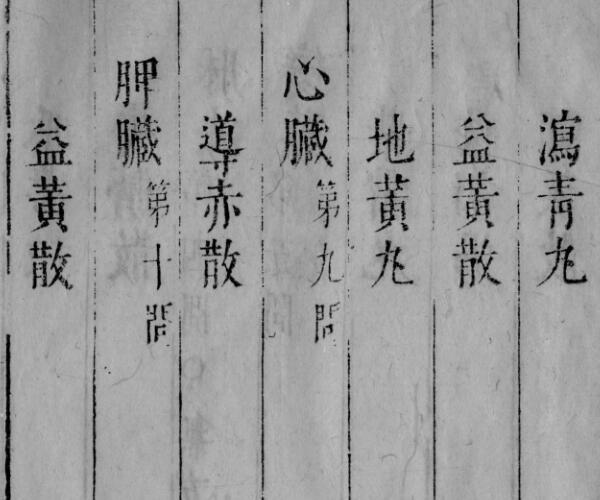 瀉青丸
益黃散
地黃丸
心臟第九問
導赤散
脾臟第十問
益黃散